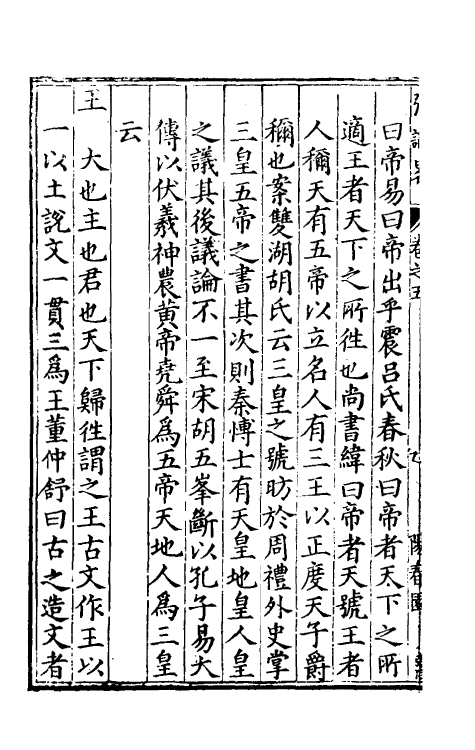 卷之五
曰帝易曰帝出乎震吕氏春秋曰帝者天下之所
適王者天下之所徃也尚書緯曰帝者天號王者
人稱天有五帝以立名人有三王以正度天子爵
稱也案雙湖胡氏云三皇之號昉於周禮外史掌
三皇五帝之書其次則秦愽士有天皇地皇人皇
之議其後議論不一至宋胡五峯斷以孔子易大
傳以伏羲神農黃帝堯舜爲五帝天地人爲三皇
云
王 大也主也君也天下歸徃謂之王古文作王以
一以土説文一貫三爲王董仲舒曰古之造文者